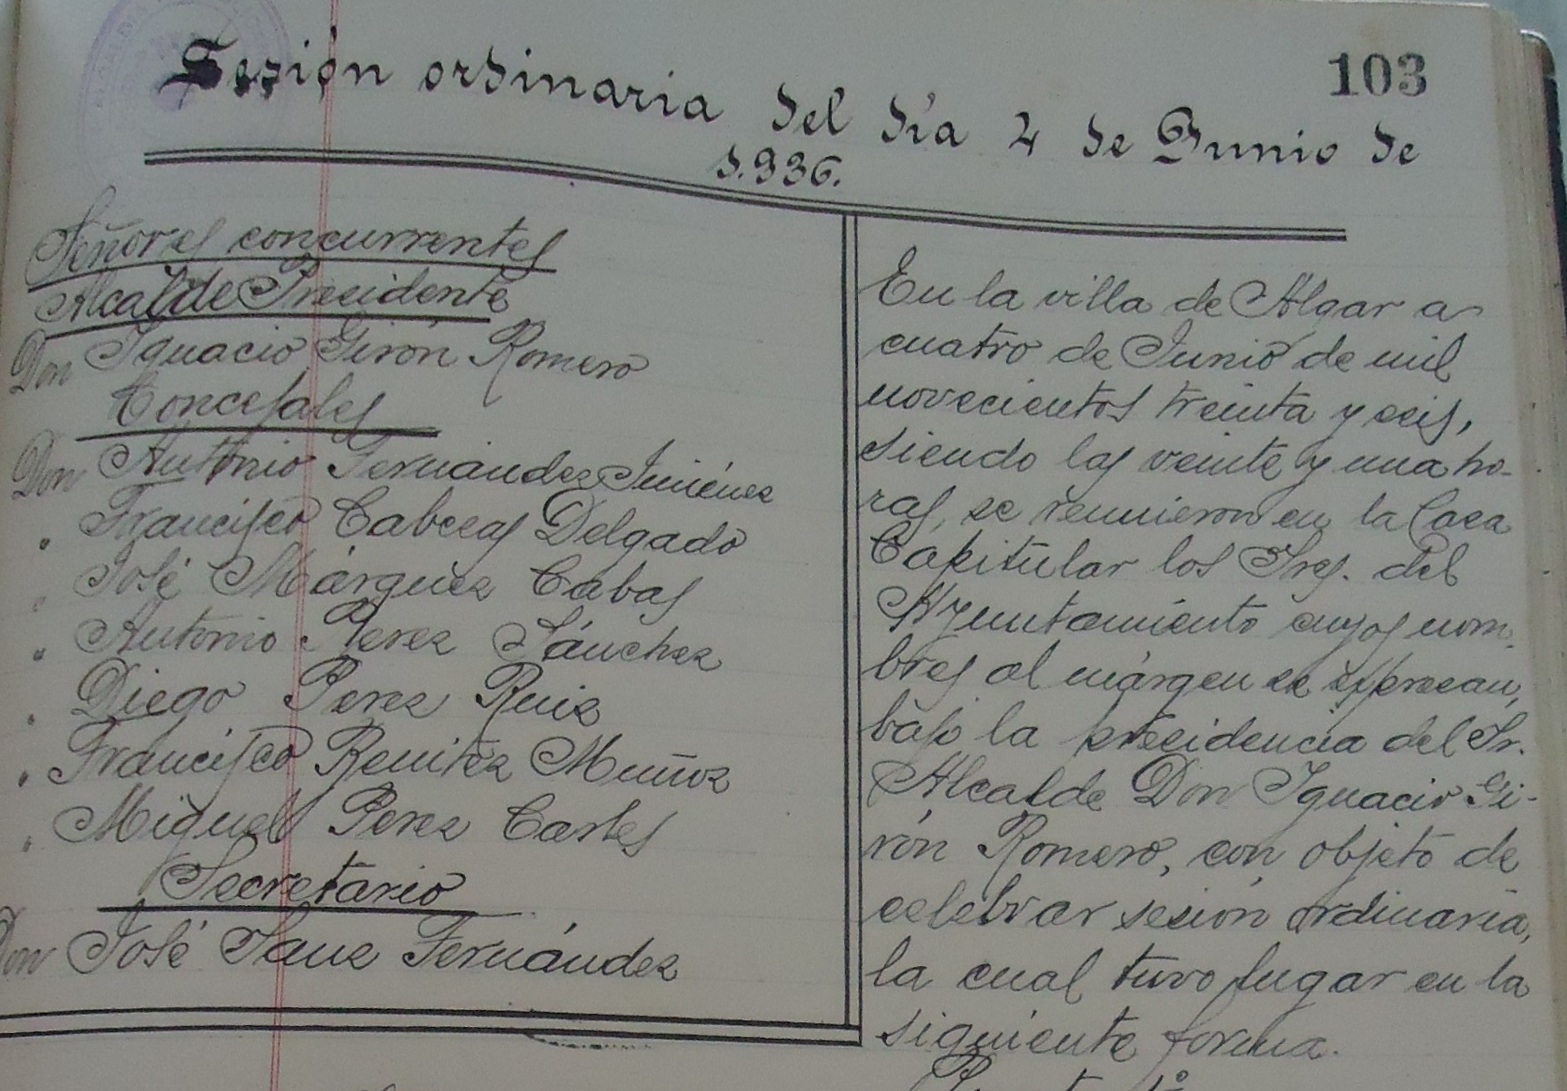 103
Sesión ordinaria del día 4 de Junio de
1.936.
Señores concurrentes
Alcalde Presidente
Don Ignacio Girón Romero
Concejales
Don Antonio Fernández Jiménez
" Francisco Cabezas Delgado
" José Márquez Cabas
" Antonio Perez Sánchez
" Diego Perez Ruiz
" Francisco Benitez Muñoz
" Miguel Perez Cortes
Secretario
Don José Sanz Fernández
En la villa de Algar a
cuatro de Junio de mil
novecientos treinta y seis,
siendo las veinte y una ho-
ras, se reunieron en la Casa
Capitular los Sres. del
Ayuntamiento cuyos nom-
bres al márgen se expresan,
bajo la presidencia del Sr.
Alcalde Don Ignacio Gi-
rón Romero, con objeto de
celebrar sesión ordinaria,
la cual tuvo lugar en la
siguiente forma.